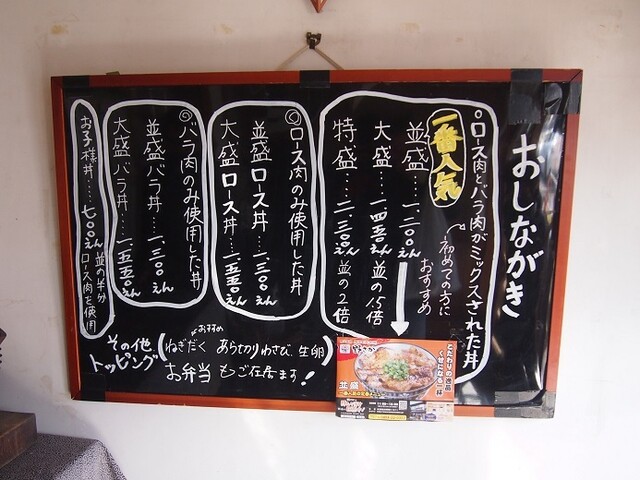 おしながき
○ロース肉とバラ肉がミックスされた丼
一番人気
並盛……一、二〇〇えん
初めての方に
おすすめ
大盛……一、四五〇えん 並の1.5倍
特盛……二、二五〇えん 並の2倍
◎ロース肉のみ使用した丼
並盛ロース丼……一、三〇〇えん
大盛ロース丼……一、五五〇えん
◎バラ肉のみ使用した丼
並盛バラ丼……一、三〇〇えん
大盛バラ丼……一、五五〇えん
お子様丼……七〇〇えん 並の半分 ロース肉を使用
その他トッピング
おすすめ
ねぎだく あらきりわさび、生卵
お弁当もご在居ます!
こだわりの逸品
くせになる一杯
並盛